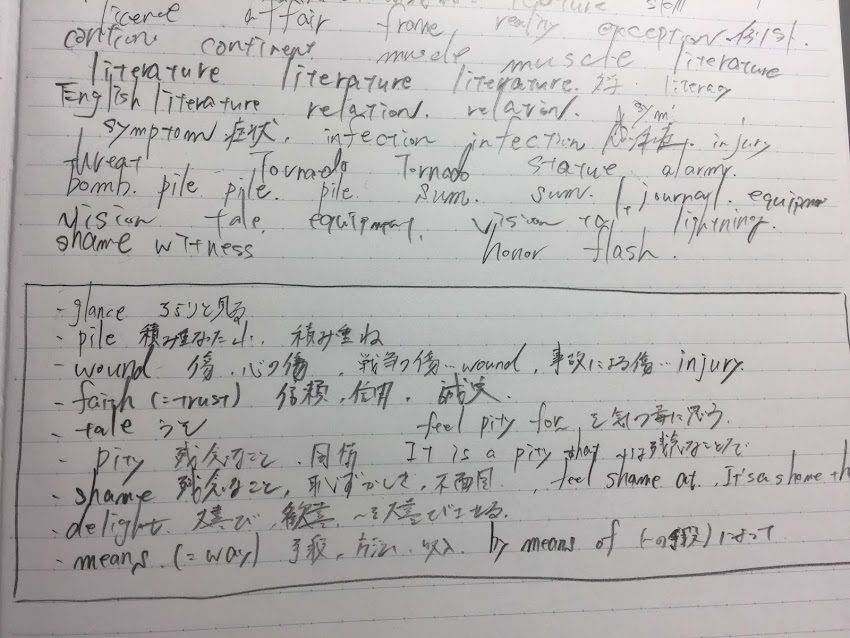 licence affair frame reality exception
caution continent muscle muscle literature
literature literature literature literacy
English literature relation. relation.
symptom 症状. infection infection injury
threat Tornado Tornado statue alarm.
bomb. pile pile. pile sum. sum. journal. equipm
vision tale. equipment. vision lightning.
shame witness honor flash.
- glance ちらりと見る
- pile 積み重なた山、積み重ね
- wound 傷、心の傷、戦争の傷…wound, 事故による傷…injury.
- faith (=trust) 信頼、信用、誠実.
- tale うそ feel pity for を気の毒に思う.
- pity 残念なこと、同情 It is a pity that ~は残念なことで
- shame 残念なこと, 恥ずかしさ, 不面目, feel shame at. It's a shame th
- delight. 大喜び, 歓喜, ~を大喜びさせる.
- means. (= way) 手段, 方法, 収入 by means of (~の手段) によって